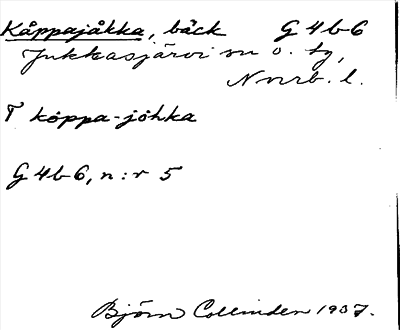 Kåppajåkka, bäck G 4b-6
Jukkasjärvi sn o. tg,
Norrb. l.
T köppa-jöhka
G 4b-6, n:r 5
Björn Collinder 1937.